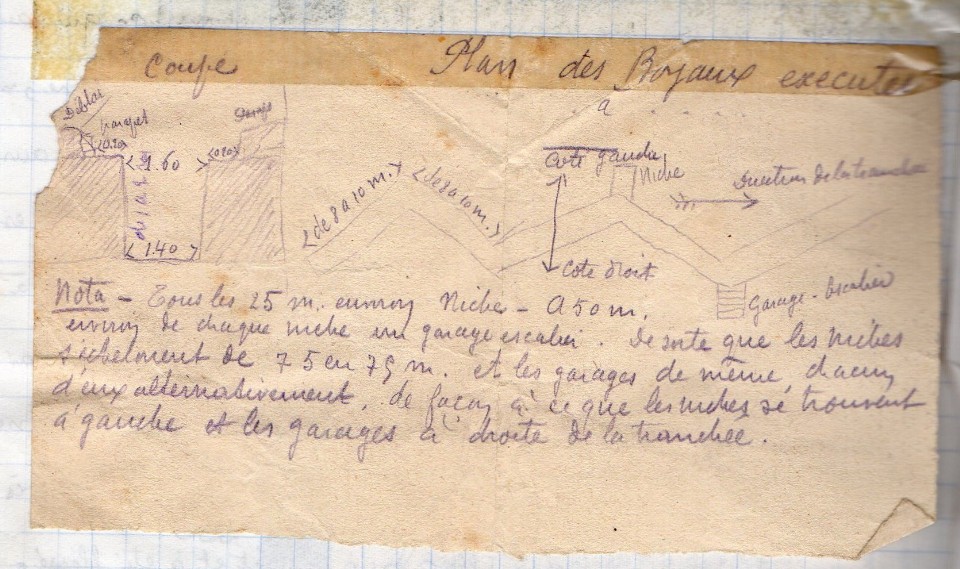 Coupe
Plan des Boyaux executes
a . . . . .
Déblai
parapet
0.20
1.60
0.20
1.40
<de 8 a 10 m.>
<de 8 a 10 m.>
Coté gauche
Niche
Direction de la tranchée
Cote droit
Garage - Escalier
Nota - Tous les 25 m. environ Niche - A 50 m.
environ de chaque niche un garage escalier. De sorte que les niches
s'echelonnent de 75 en 75 m. et les garages de même, chacun
d'eux alternativement, de façon à ce que les niches se trouvent
à gauche et les garages à droite de la tranchée.